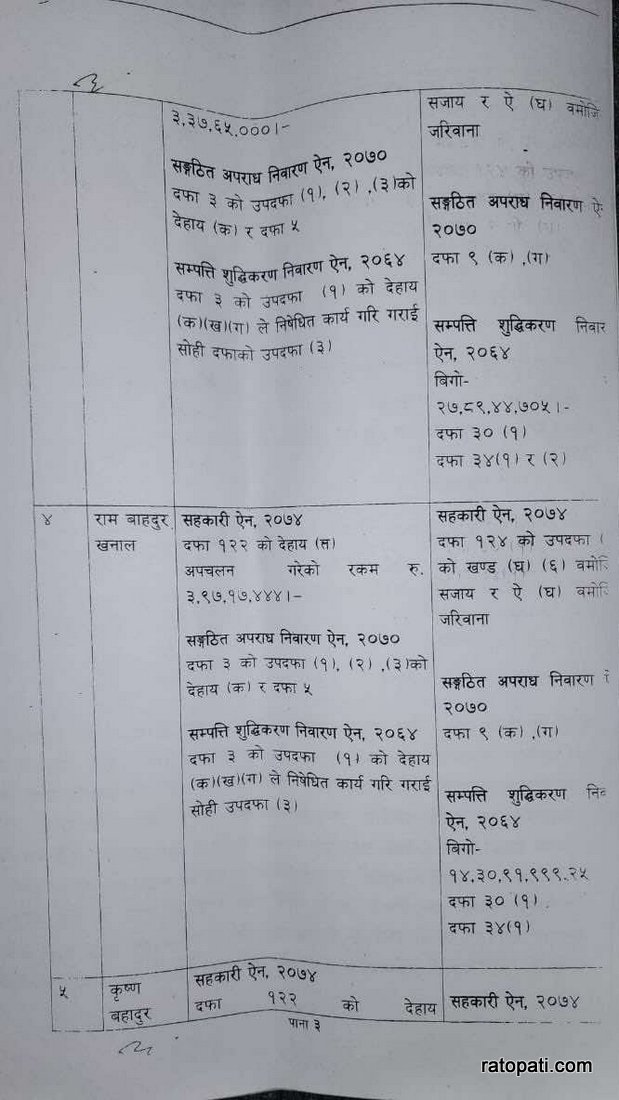 ३,३७,६५,०००।-
सङ्गठित अपराध निवारण ऐन, २०७०
दफा ३ को उपदफा (१), (२) ,(३)को
देहाय (क) र दफा ५
सम्पत्ति शुद्धिकरण निवारण ऐन, २०६४
दफा ३ को उपदफा (१) को देहाय
(क)(ख)(ग) ले निषेधित कार्य गरि गराई
सोही दफाको उपदफा (३)
सजाय र ऐ (घ) वमोजि
जरिवाना
सङ्गठित अपराध निवारण ऐ
२०७०
दफा ९ (क) ,(ग)
सम्पत्ति शुद्धिकरण निवार
ऐन, २०६४
बिगो-
२७,८९,४४,७०५।-
दफा ३० (१)
दफा ३४(१) र (२)
४
राम बाहदुर
खनाल
सहकारी ऐन, २०७४
दफा १२२ को देहाय (त)
अपचलन गरेको रकम रु.
३,९७,१७,४४४।-
सङ्गठित अपराध निवारण ऐन, २०७०
दफा ३ को उपदफा (१), (२) ,(३)को
देहाय (क) र दफा ५
सम्पत्ति शुद्धिकरण निवारण ऐन, २०६४
दफा ३ को उपदफा (१) को देहाय
(क)(ख)(ग) ले निषेधित कार्य गरि गराई
सोही उपदफा (३)
सहकारी ऐन, २०७४
दफा १२४ को उपदफा (
को खण्ड (घ) (६) वमोजि
सजाय र ऐ (घ) वमोजि
जरिवाना
सङ्गठित अपराध निवारण
२०७०
दफा ९ (क) ,(ग)
सम्पत्ति शुद्धिकरण निव
ऐन, २०६४
बिगो-
१४,३०,९१,९९९.२५
दफा ३० (१)
दफा ३४(१)
५
कृष्ण
बहादुर
सहकारी ऐन, २०७४
दफा १२२ को देहाय
सहकारी ऐन, २०७४
पाना ३
ratopati.com